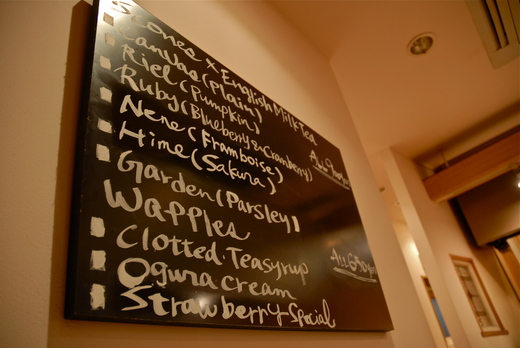 Scones x English Milk Tea
Canvas (Plain)
Riel (Pumpkin)
Ruby (Blueberry & Cranberry)
Nene (Framboise)
Hime (Sakura)
Garden (Parsley)
Wapples
Clotted Teasyrup
Ogura cream
Strawberry Special